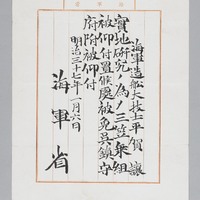 海軍造船大技士平賀 讓
實地研究ノ為メ三笠乗組
被仰付置候處被免呉鎮守
府附被仰付
明治三十七年一月六日
海軍省